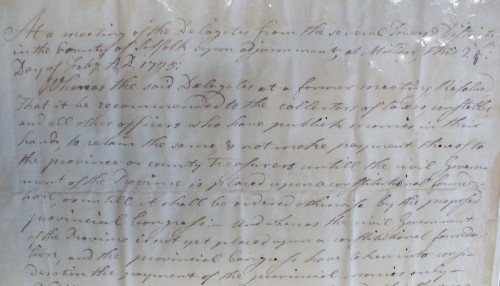 At a meeting of the Delegates from the several Towns & Districts
in the County of Suffolk upon adjournment, at Milton, this 2
Day of Feby. A.D. 1775:
Whereas the said Delegates at a former meeting Resolved
That it be recommended to the collectors of taxes, constables
and all other officers who have publick monies in their
hands to retain the same, & not make payment thereof to
the province or county Treasurers untill the civil Govern
ment of the Province is placed upon a constitutional founda
tion, or untill it shall be ordered otherwise by the proposed
provincial Congress:— And whereas the civil Government
of the Province is not yet placed upon a constitutional founda
tion, and the provincial Congress have taken into consi
deration the payment of the provincial monies only—